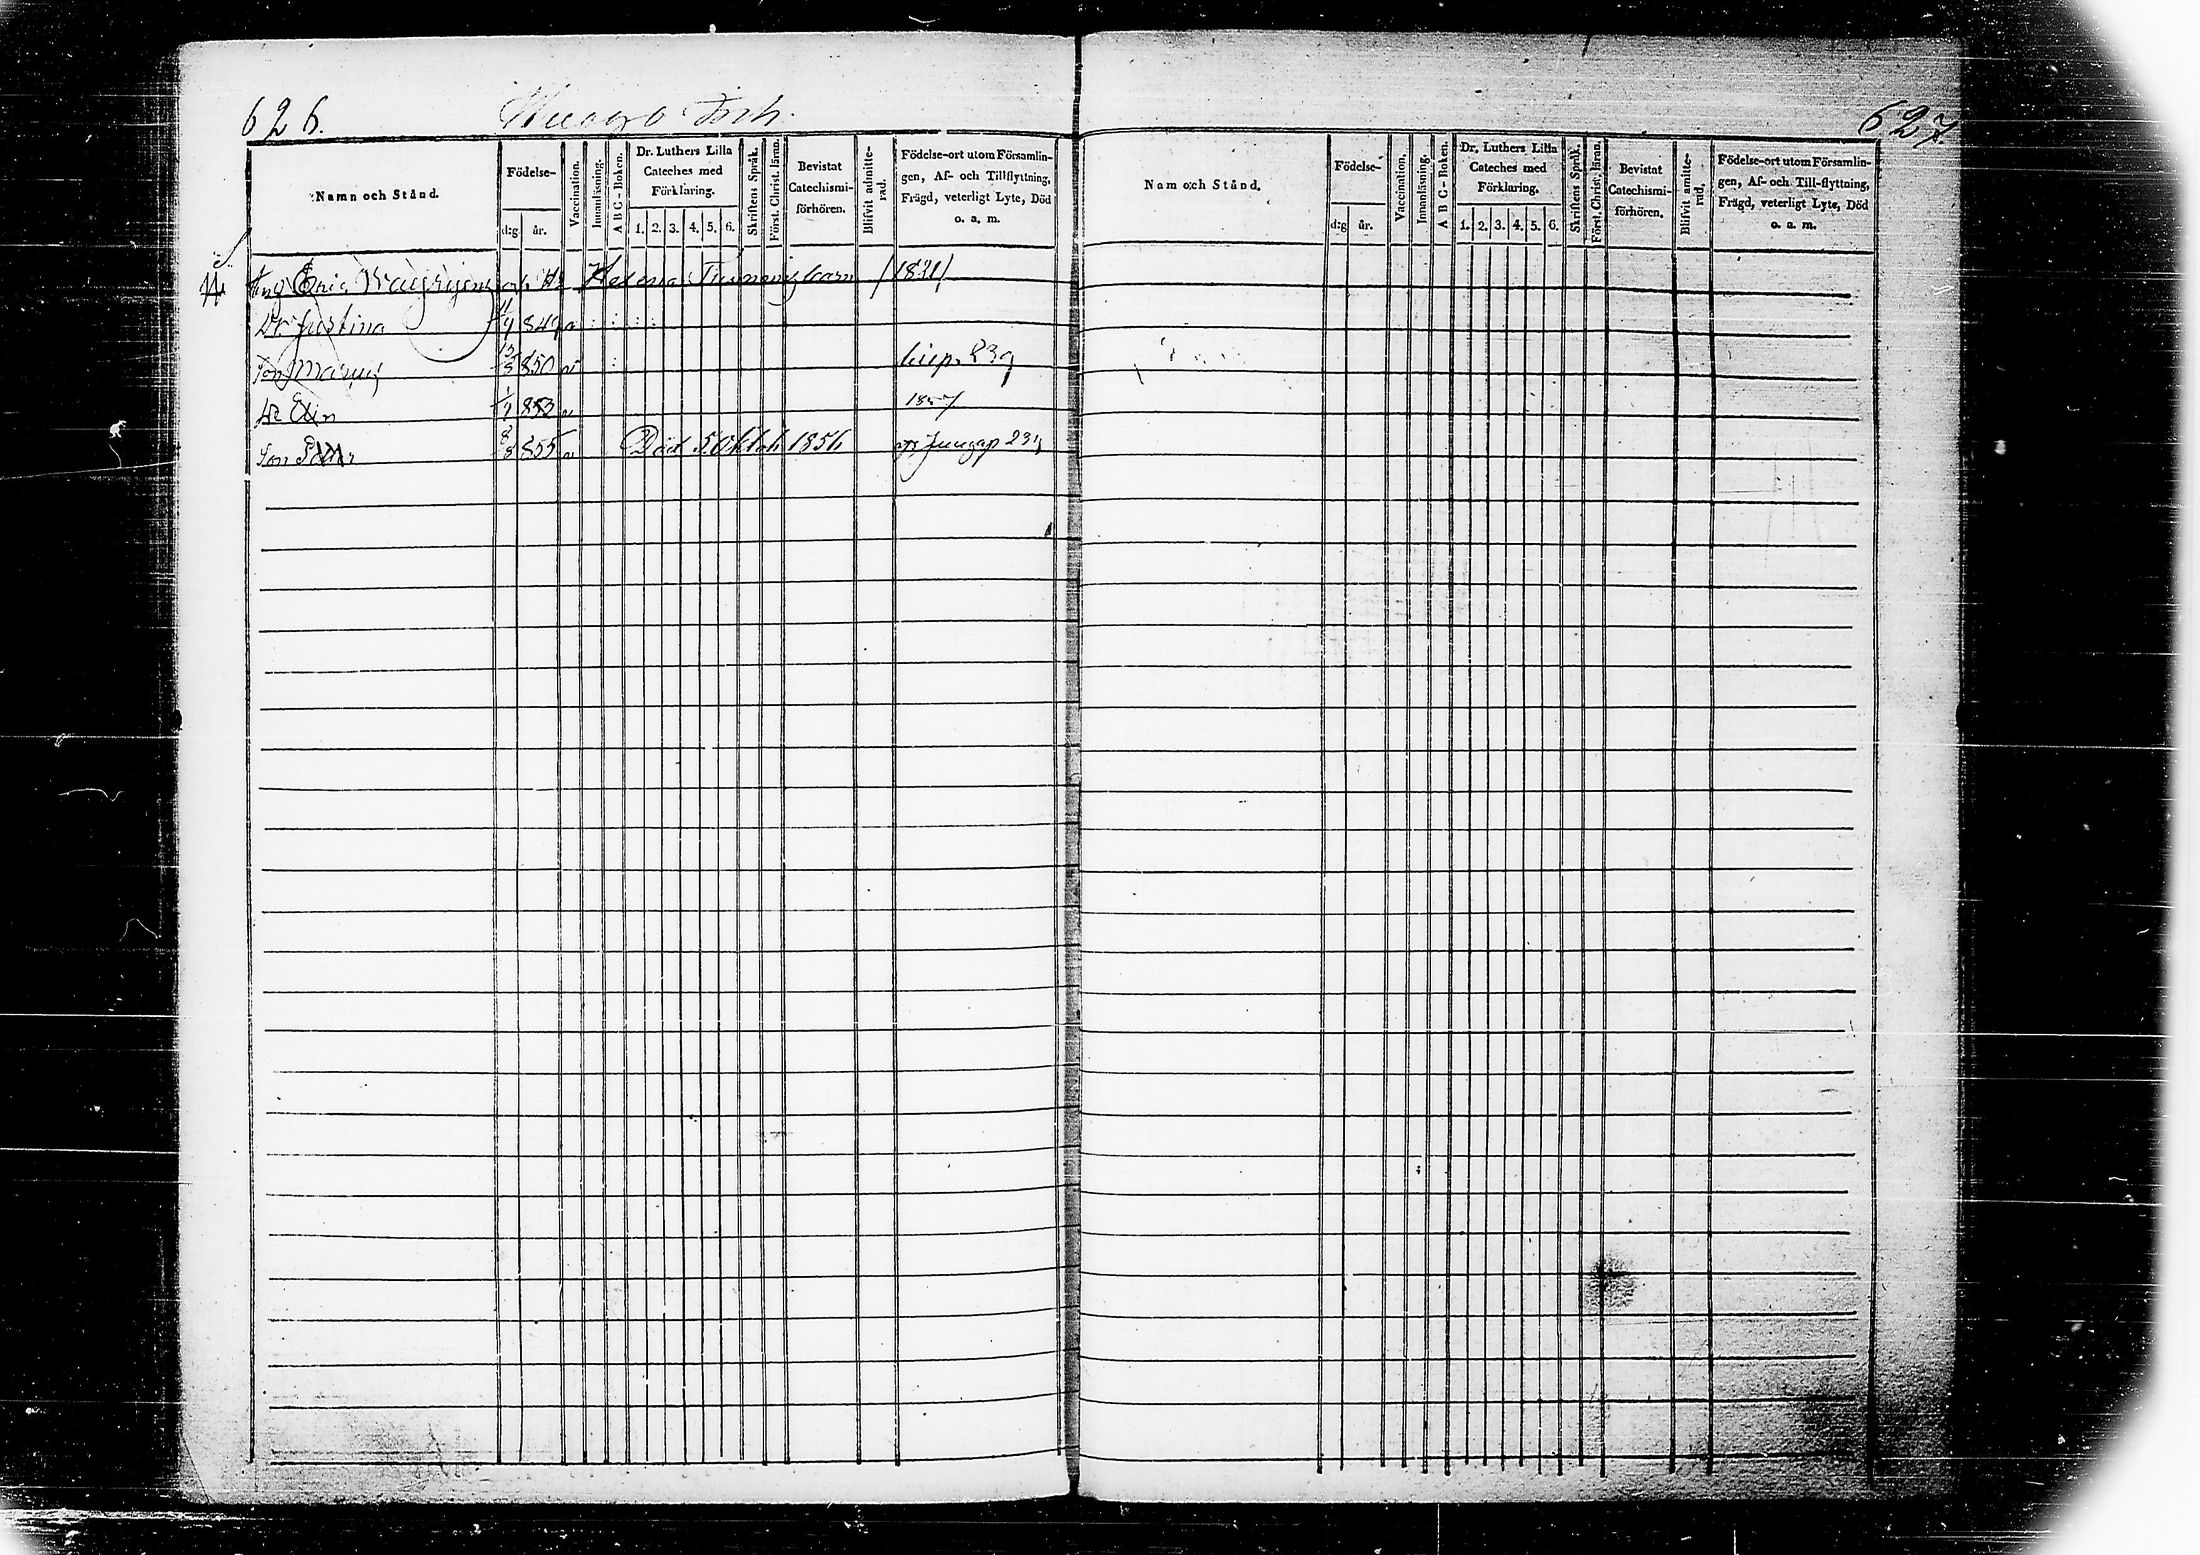 626.
Torp.
Namn och Stånd.
Födelse-
d:g år.
Vaccination.
Innanläsning.
A B C - Boken.
Dr. Luthers Lilla
Cateches med
Förklaring.
1. 2. 3. 4. 5. 6.
Skriftens Språk.
Först. Christ. läran.
Bevistat
Catechismi-
förhören.
Blifvit admitte-
rad.
Födelse-ort utom Församlin-
gen, Af- och Tillflyttning,
Frägd, veterligt Lyte, Död
o. a. m.
Eric Helena barn /1821/
Dr Justina 11/9 849
Son Magnus 13/5 850
Dr Elin 1/9 852 1857
Son Petter 8/8 855 Död 5 Oktob 1856
627.
Namn och Stånd.
Födelse-
d:g år.
Vaccination.
Innanläsning.
A B C - Boken.
Dr. Luthers Lilla
Cateches med
Förklaring.
1. 2. 3. 4. 5. 6.
Skriftens Språk.
Först. Christ. läran.
Bevistat
Catechismi-
förhören.
Blifvit amitte-
rad.
Födelse-ort utom Församlin-
gen, Af- och Till-flyttning,
Frägd, veterligt Lyte, Död
o. a. m.